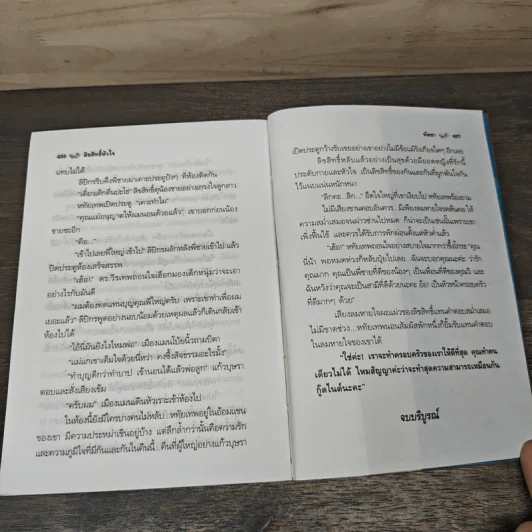 486 ลิขสิทธิ์หัวใจ
แทบไม่ได้
ลิปิกรรีบดึงพี่ชายมาเคาะประตูปังๆ ที่ห้องติดกัน
"เดี๋ยวเด็กตื่นปะไร" ลิขสิทธิ์ดุน้องชายอย่างเกรงใจลูกสาว
หทัยเทพเปิดประตู "เคาะทำไม"
"คุณแม่อนุญาตให้ผมนอนด้วยแล้ว" เขาบอกก่อนน้อง
ชายชะงัก
"คือ..."
"เข้าไปเลยพี่ใหญ่ เข้าไป" ลิปิกรผลักหลังพี่ชายเข้าไปแล้ว
ปิดประตูห้องเสร็จสรรพ
"เฮ้อ!" ดร.วีรเทพถอนใจเฮือกมองเด็กหนุ่มว่าจะเอา
อย่างไรกันมันดี
"ผมต้องทดแทนบุญคุณพี่ใหญ่ครับ เพราะเขาทำเพื่อผม
เยอะแล้ว" ลิปิกรพูดอย่างนอบน้อมด้วยเหตุผลแล้วก็เดินกลับเข้า
ห้องไป
"ไอ้นี่มันยังไงไหมพ่อ" เมืองแมนโบ้ยปี๋ถามบิดา
"แม่แกเขาเต็มใจด้วยนี่หว่า คงซึ้งสัจธรรมอะไรมั้ง"
"ทำบุญดีกว่าทำบาป เข้านอนได้แล้วพ่อลูก" แก้วบุษรา
ตอบและสั่งเสียงเข้ม
"ครับผม" เมืองแมนเดินหัวเราะเข้าห้องไป
ในห้องนี้ยังมีใครบางคนไม่หลับ หทัยเทพอยู่ในอ้อมแขน
ของเขา มีความประหม่าเขินอยู่บ้าง แต่ลึกล้ำกว่านั้นคือความรัก
และความภูมิใจที่มีกันและกันในคืนนี้ คืนที่ผู้ใหญ่อย่างแก้วบุษรา
ทัดชา 487
เปิดประตูกว้างรับเขยอย่างเขาอย่างไม่มีข้อแม้รังเกียจใดๆ อีกเลย
ลิขสิทธิ์หลับแล้วอย่างเป็นสุขด้วยมียอดหญิงที่รักนี้
ประดับกายและหัวใจ เป็นลิขสิทธิ์ของกันและกันที่ผูกหัวใจกัน
ไว้แนบแน่นหนักหนา
"ลิกคะ...ลิก..." อึดใจใหญ่ที่เขาเงียบไป หทัยเทพร้องถาม
ไม่มีเสียงขานตอบอันควร มีเพียงลมหายใจหลุดพ้นต่อ ให้
ความสม่ำเสมอจนผ่าวซ่านไปหมด ก็น่าจะเป็นเช่นนั้นเพราะเขา
เพิ่งฟื้นไข้ และควรได้รับการพักผ่อนตั้งแต่หัวค่ำแล้ว
"เฮ้อ!" หทัยเทพถอนใจอย่างสบายใจมากกว่าซึ้งโกรธ "คุณ
นี่น้า พอหมดห่วงก็หลับปุ๋ยไปเลย.. ฉันจะบอกคุณนะคะ ว่ารัก
คุณมาก คุณเป็นพี่ชายที่ดีของน้องๆ เป็นเพื่อนที่ดีของคุณรวี และ
ฉันหวังว่าคุณจะเป็นสามีที่ดีด้วยนะคะ อ๊ะ! เป็นหัวหน้าครอบครัว
ที่ดีมากๆ ด้วย"
เสียงลมหายใจแผ่วของลิขสิทธิ์แทนคำตอบสม่ำเสมอ
ไม่มีขาดช่วง...หทัยเทพนอนสัมผัสพักหนึ่งก็ยิ้มรับแทนคำตอบ
ในลมหายใจของเขาได้
"ใช่ค่ะ! เราจะทำครอบครัวของเราให้ดีที่สุด คุณทำคน
เดียวไม่ได้ ไหมสัญญาค่ะว่าจะทำสุดความสามารถเหมือนกัน
กู๊ดไนต์นะคะ"
จบบริบูรณ์